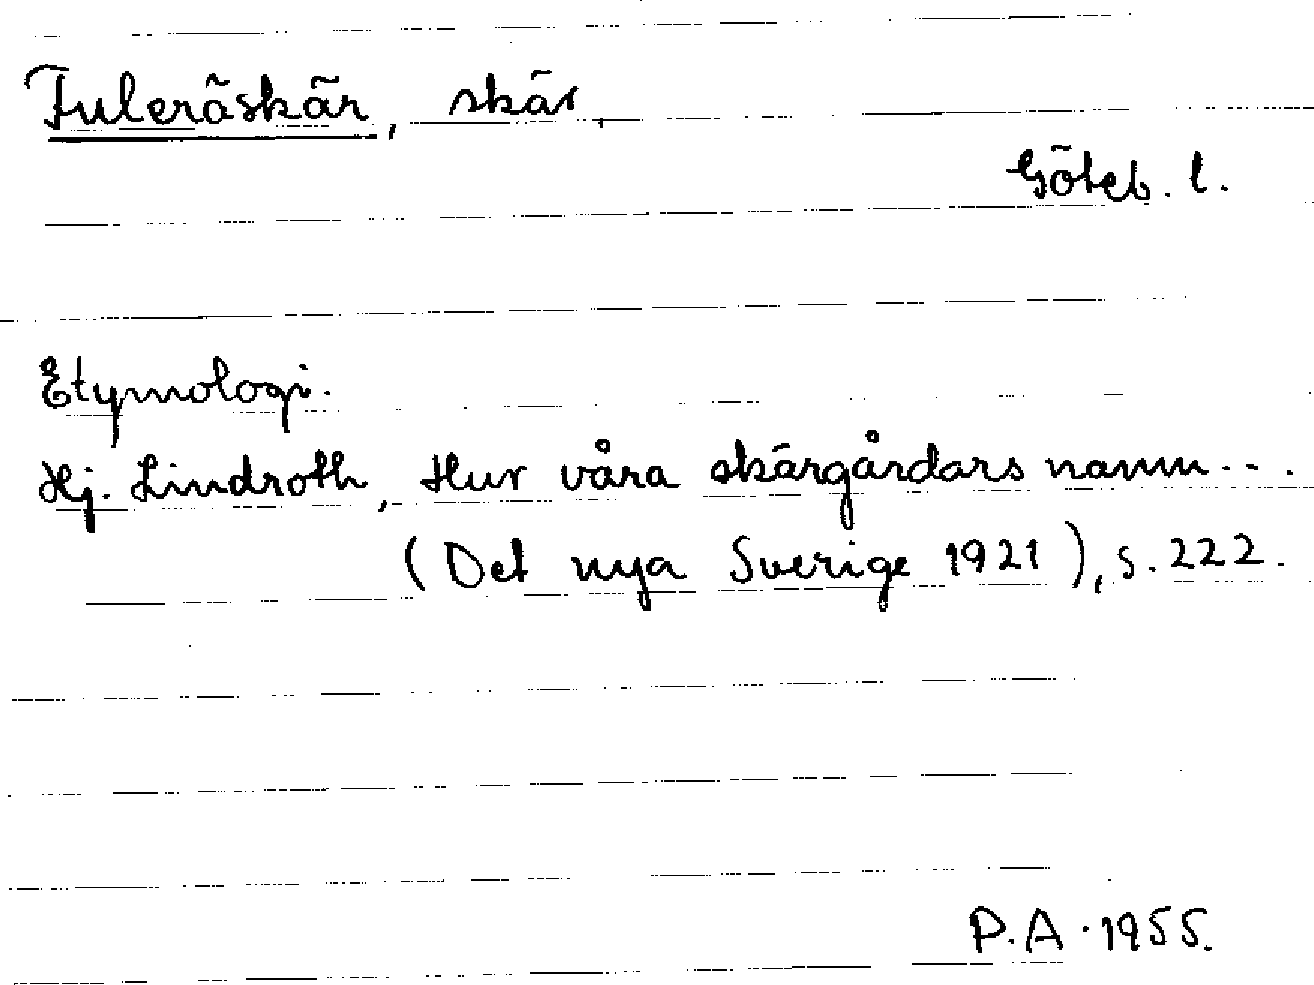 Fuleräskär, skär.
Göteb. l.
Etymologi.
Hj. Lindroth, Hur våra skärgårdars namn...
(Det nya Sverige 1921), s. 222.
P.A. 1955.